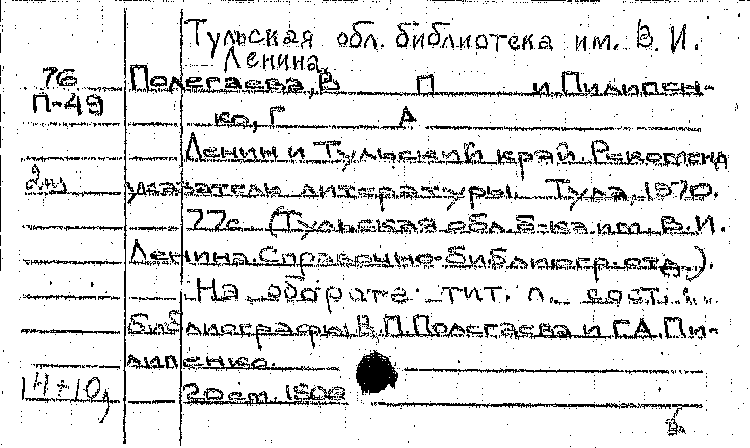 Тульская обл. библиотека им. В. И.
Ленина.
76 Полегаева, В П и Пилипен-
П-49 ко, Г А
Ленин и Тульский край. Рекоменд
указатель литературы. Тула, 1970.
77с. (Тульская обл. б-ка им. В.И.
Ленина. Справочно-библиогр. отд.).
На обороте тит. л. сост.:
библиографы В.П. Полегаева и Г.А. Пи-
липенко.
20 см. 1500